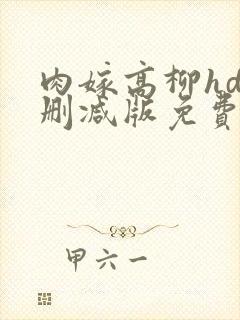 肉嫁高柳hd
删减版免费
甲六一